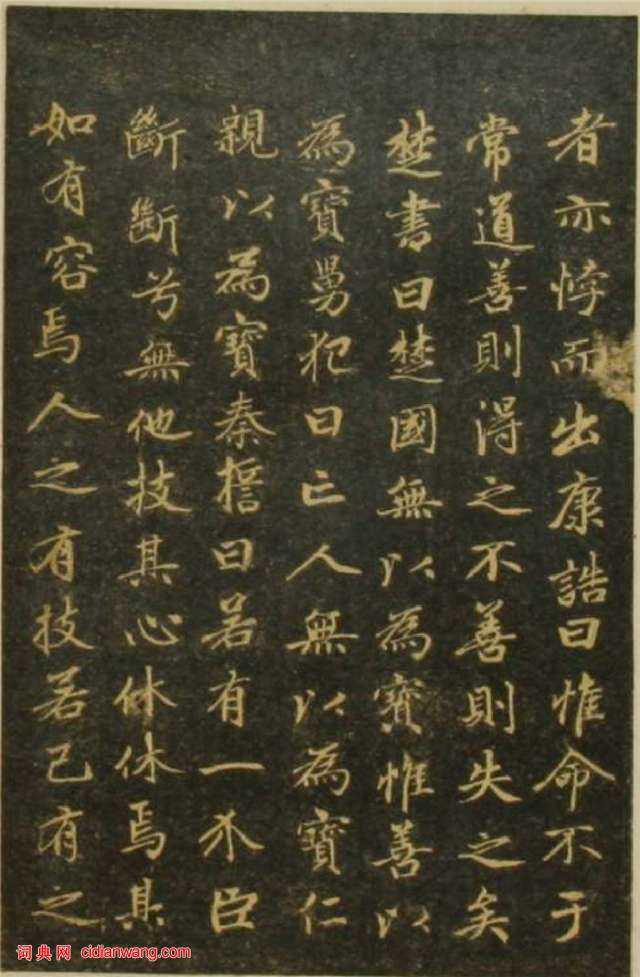 者亦悖而出康誥曰惟命不于
常道善則得之不善則失之矣
楚書曰楚國無以為寶惟善以
為寶舅犯曰亡人無以為寶仁
親以為寶秦誓曰若有一个臣
斷斷兮無他技其心休休焉其
如有容焉人之有技若己有之
词典网 cidianwang.com